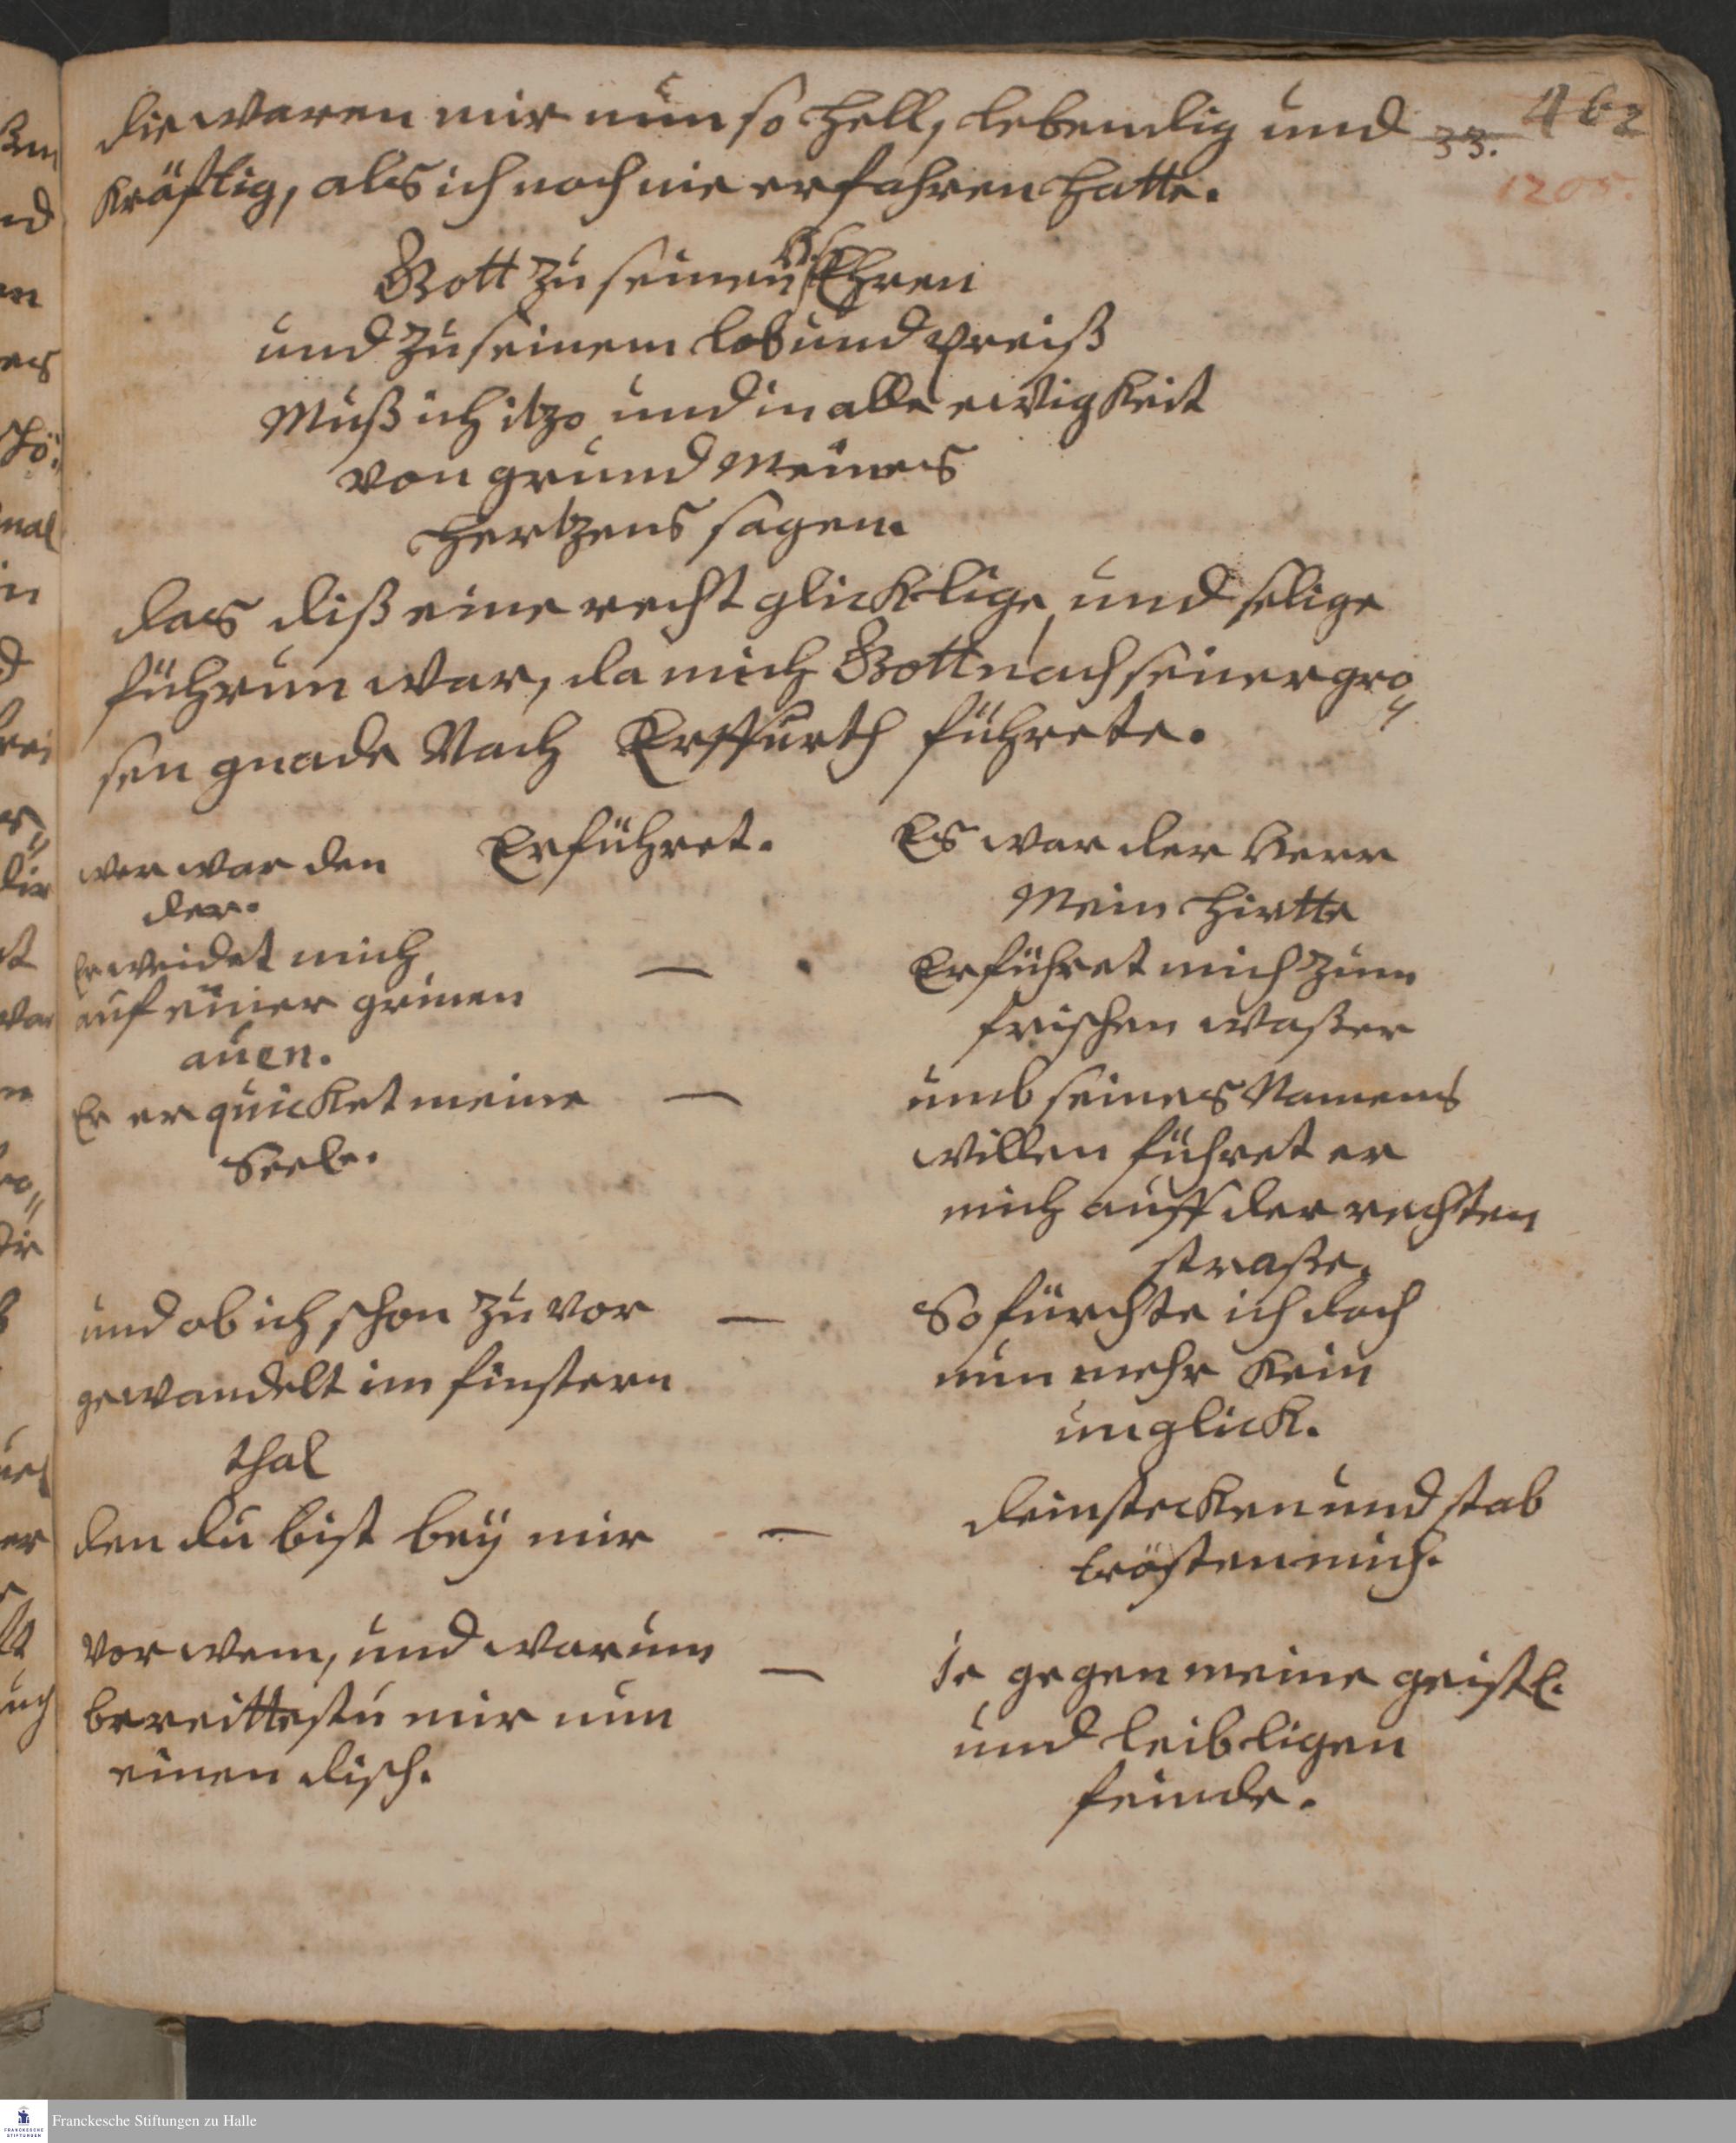 462
33.
1205.
die waren mir nun so hell, lebendig und
kräfftig, als ich noch nie erfahren hatte.
Gott zu seinen Ehren
und zu seinem lob und preiß
Muß ich itzo und in alle ewigkeit
von grund meines
Hertzens sagen.
das diß eine recht glicklige und selige
führun war, da mich Gott nach seiner gro
sen gnade Nach Erffurth führete.
wer war den
der.
Er führet.
Es war der Herr
Mein Hirtte
Er weidet mich
auf einer grinen
auen.
—
Er führet mich zum
frischen waßer
Er erquicket meine
Seele.
—
umb seines Namens
willen führet er
mich auff der rechten
straße.
und ob ich schon zu vor
gewandelt im finstern
thal
—
So fürchte ich doch
nun mehr kein
unglick.
den du bist bey mir
—
dein stecken und stab
trösten mich.
vor wem, und warum
bereittestu mir nun
einen disch.
—
Je gegen meine geistl.
und leibligen
feinde.
Franckesche Stiftungen zu Halle
FRANCKESCHE
STIFTUNGEN